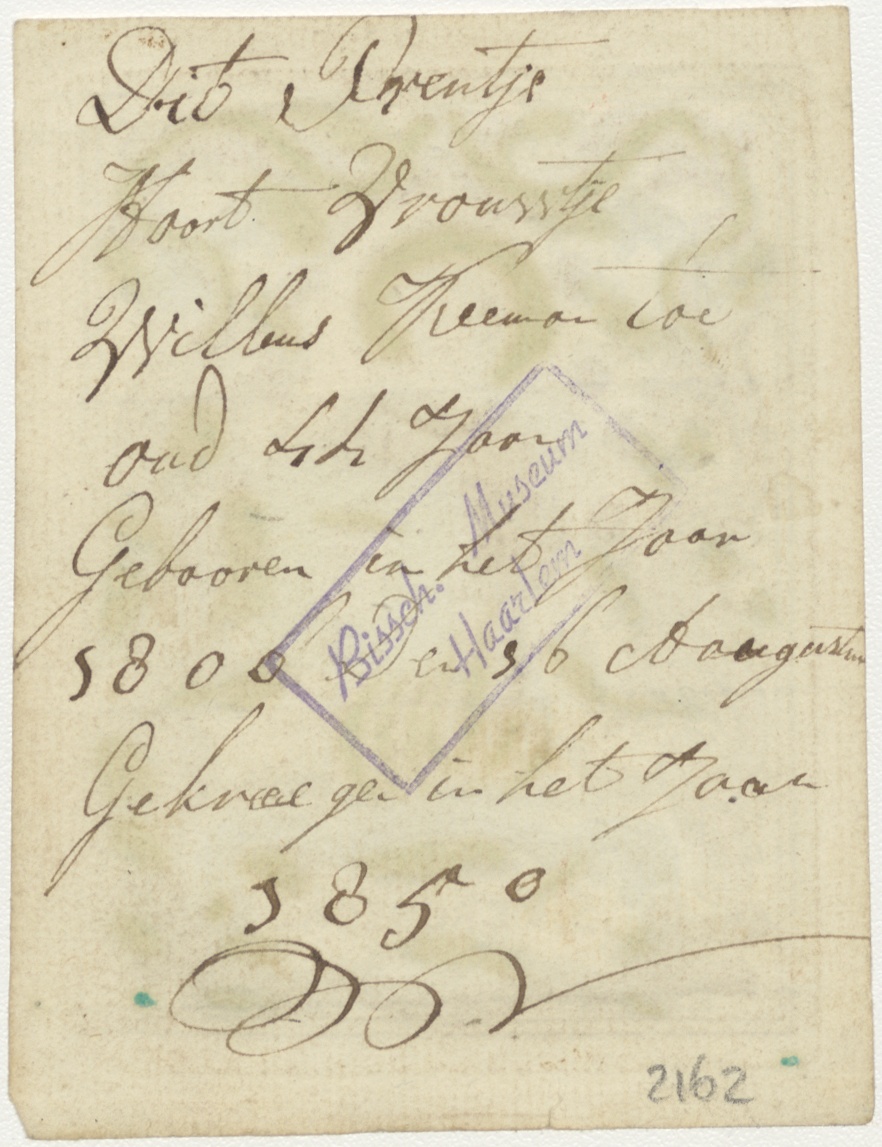 Dit Prentje
Hoort Vrouwtje
Willems Keeman toe
oud 44 Jaar
Gebooren in het Jaar
1806 Den 16 Aaugustus
Gekreegen in het Jaar
1850
Bissch. Museum
Haarlem
2162